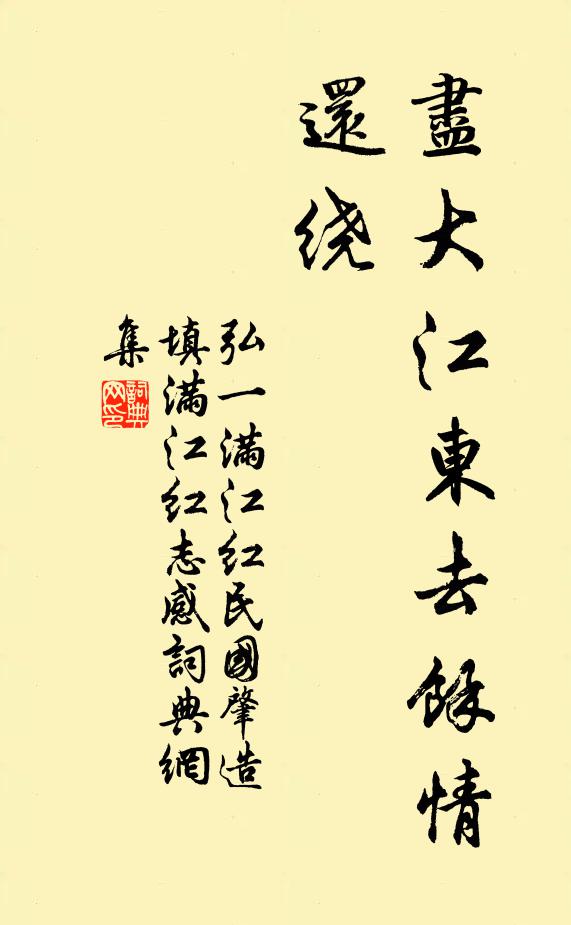 盡大江東去餘情
還绕
弘一滿江红民國肇造
填滿江红志感詞典網
集
詞典
网印